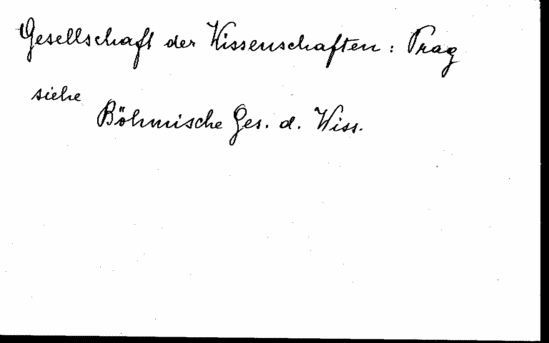 Gesellschaft der Wissenschaften : Prag
siehe
Böhmische Ges. d. Wiss.